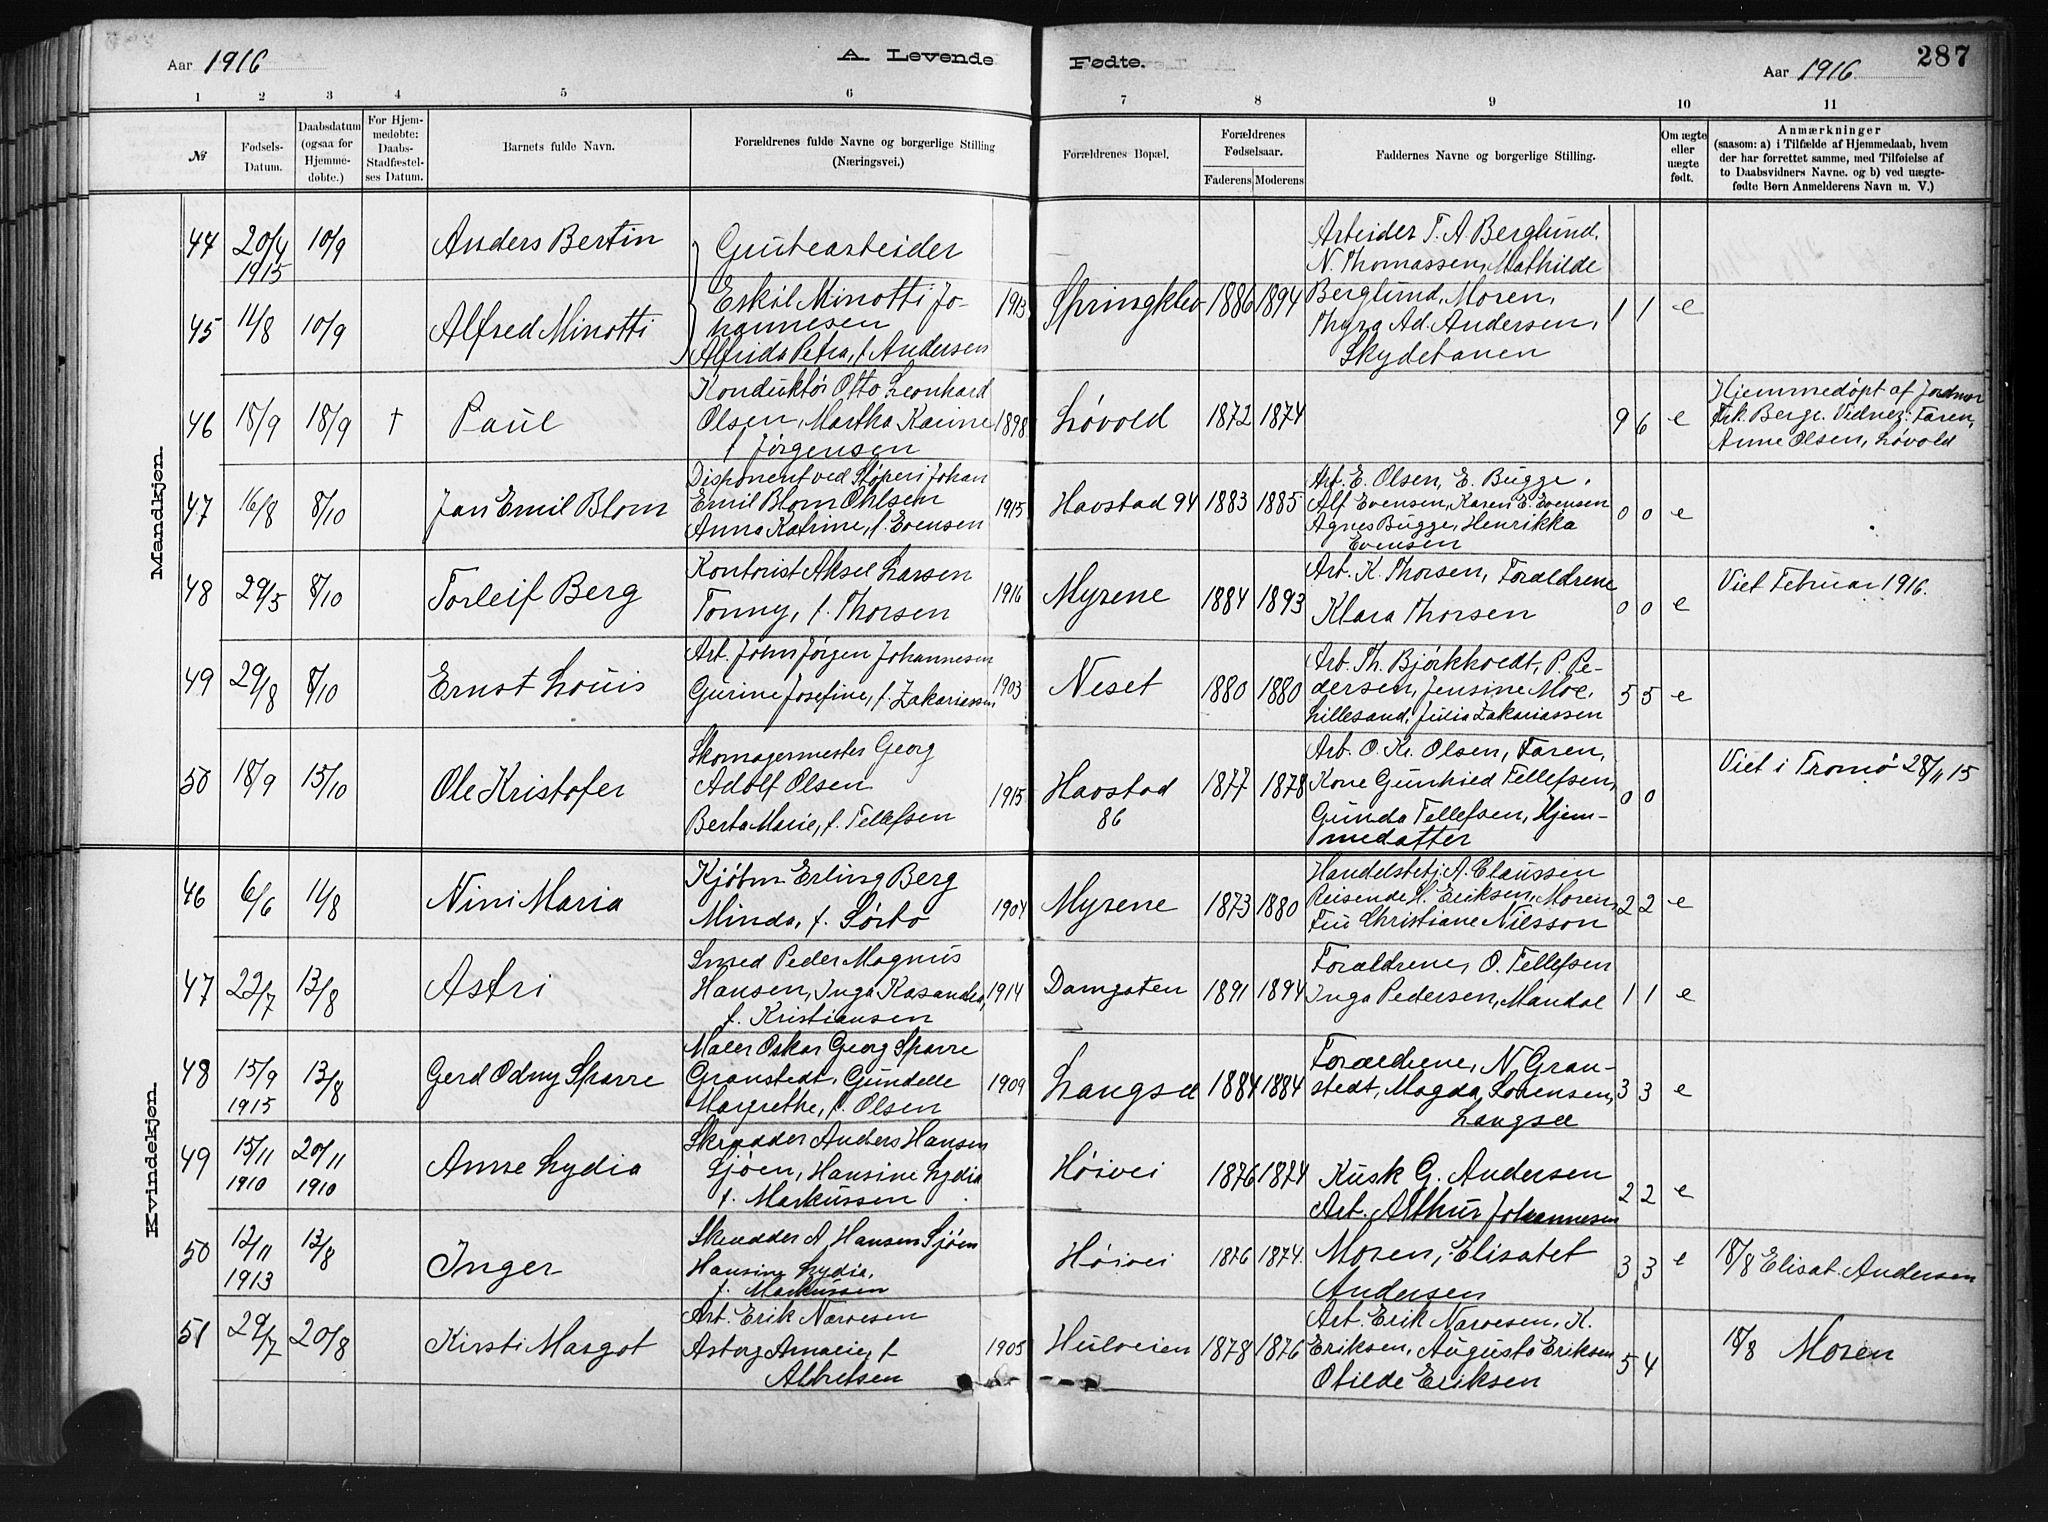 Aar 1916
A. Levende Fødte.
Aar 1916
287
1 2 3 4 5 6 7 8 9 10 11
№
Fødsels-
Datum.
Daabsdatum
(ogsaa for
Hjemme-
døbte.)
For Hjem-
medøbte:
Daabs-
Stadfæstel-
ses Datum.
Barnets fulde Navn.
Forældrenes fulde Navne og borgerlige Stilling
(Næringsvei.)
Forældrenes Bopæl.
Forældrenes
Fødselsaar.
Faderens Moderens
Faddernes Navne og borgerlige Stilling.
Om ægte
eller
uægte
født.
Anmærkninger
(saasom: a) i Tilfælde af Hjemmedaab, hvem
der har forrettet samme, med Tilføielse af
to Daabsvidners Navne. og b) ved uægte-
fødte Børn Anmelderens Navn m. V.)
Mandkjøn.
44 20/4 1915 10/9 Anders Bertin
45 11/8 10/9 Alfred Minotti
Grubearbeider
Eskil Minotti Jo-
hannesen
Alfrida Petra, f. Andersen
1913 Springklev 1886 1894
Arbeider T. A. Berglund,
N. Thomassen, Mathilde
Berglund, Moren,
Thyra Ad. Andersen,
Skydebanen
1 1 e
46 18/9 18/9 † Paul
Konduktør Otto Leonhard
Olsen, Martha Karine
f. Jørgensen
1898 Løvold 1872 1874 9 6 e
Hjemmedøpt af Jordmor
Frk. Berge. Vidner: Faren,
Anne Olsen, Løvold
47 16/8 8/10 Jan Emil Blom
Disponent ved Støperi Johan
Emil Blom Ohlsen
Anna Katrine, f. Evensen
1915 Havstad 94 1883 1885
Arb. E. Olsen, E. Bugge,
Alf Evensen, Karen E. Evensen
Agnes Bugge, Henrikka
Evensen
0 0 e
48 29/5 8/10 Torleif Berg
Kontorist Aksel Larsen
Tonny, f. Thorsen
1916 Myrene 1884 1893
Arb. K. Thorsen, Forældrene
Klara Thorsen
0 0 e
Viet Februar 1916.
49 29/8 8/10 Ernst Louis
Arb. John Jørgen Johannesen
Gurine Josefine, f. Zakariassen
1903 Neset 1880 1880
Arb. Th. Bjørkhoedt, P. Pe-
dersen, Jensine Moe,
Lillesand, Julia Zakariassen
5 5 e
50 18/9 15/10 Ole Kristofer
Skomagermester Georg
Adolf Olsen
Berta Marie, f. Tellefsen
1915 Havstad
86
1877 1878
Arb. O. Kr. Olsen, Faren,
Kone Gunhild Tellefsen,
Gunda Tellefsen, Hjem-
medatter
0 0
Viet i Tromø 28/11 15
Kvindekjøn.
46 6/6 11/8 Nini Maria
Kjøbm. Erling Berg
Minda, f. Sørbø
1904 Myrene 1873 1880
Handelsbetj. A. Claussen
Reisende H. Eriksen, Moren,
Fru Christiane Nilsson
2 2 e
47 23/7 13/8 Astri
Smed Peder Magnus
Hansen, Inga Kasandra,
f. Kristiansen
1914 Damgaten 1891 1894
Forældrene, O. Tellefsen
Inga Pedersen, Mandal
1 1 e
48 15/9 1915 13/8 Gerd Odny Sparre
Maler Oskar Georg Sparre
Granstedt, Gundelle
Margrethe, f. Olsen
1909 Langsæ 1884 1884
Forældrene, N. Gran-
stedt, Magda Sørensen,
Langsæ
3 3 e
49 15/11 1910 20/11 1910 Anne Lydia
Skrædder Anders Hansen
Sjøen, Hansine Lydia
f. Markussen
Høivei 1876 1874
Kusk G. Andersen
Arb. Arthur Johannesen
2 2 e
50 12/11 1913 13/8 Inger
Skrædder A. Hansen Sjøen
Hansine Lydia,
f. Markussen
Høivei 1876 1874.
Moren, Elisabet
Andersen
3 3 e
18/8 Elisab. Andersen
51 29/7 20/8 Kirsti Margot
Arb. Erik Narvesen
Asborg Amalie, f.
Albretsen
1905 Hulveien 1878 1876
Arb. Erik Narvesen, K.
Eriksen, Augusta Eriksen
Otilde Eriksen
5 4
18/8 Moren